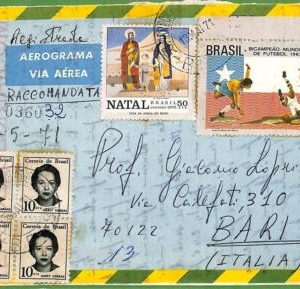 Registrada
AEROGRAMA
VIA AÉREA
RACCOMANDATA
036032
-5-71
NATAL BRASIL 50
CASA DA MOEDA DO BRASIL
BRASIL BICAMPEÃO MUNDIAL
DE FUTEBOL 196
Correio do Brasil
Correio do Brasil
10
10
DARCY VARGAS
Prof. Giacomo Lopr
Via Calefati, 310
70122 BARI
13 (ITALIA)